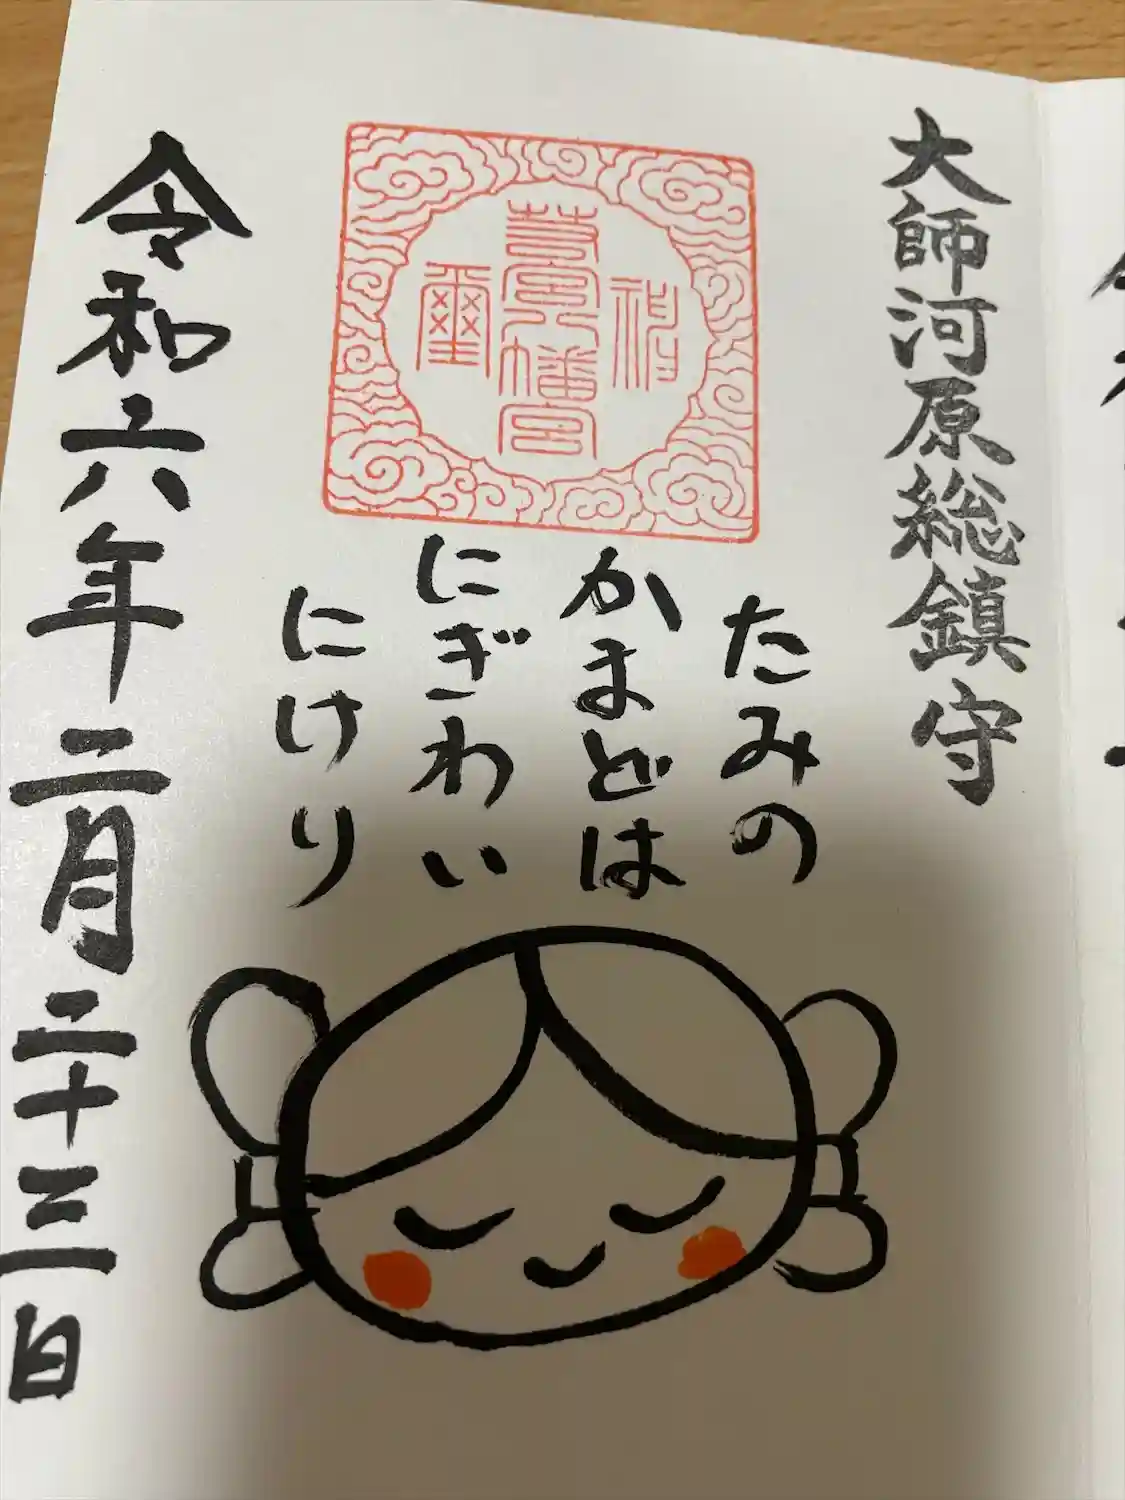 大師河原総鎮守
たみの
かまどは
にぎわい
にけり
令和六年二月二十三日